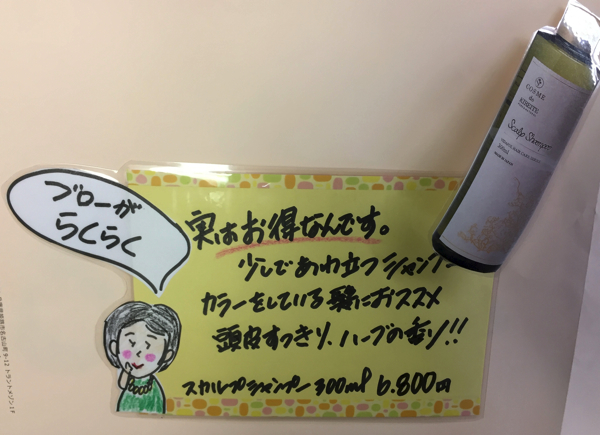 ブローが
らくらく
実はお得なんです。
少しであわ立つシャンプー
カラーをしている髪におススメ
頭皮すっきり、ハーブの香り!!
スカルプシャンプー 300ml 6.800円
COSME
de
Scalp Shampoo
300ml